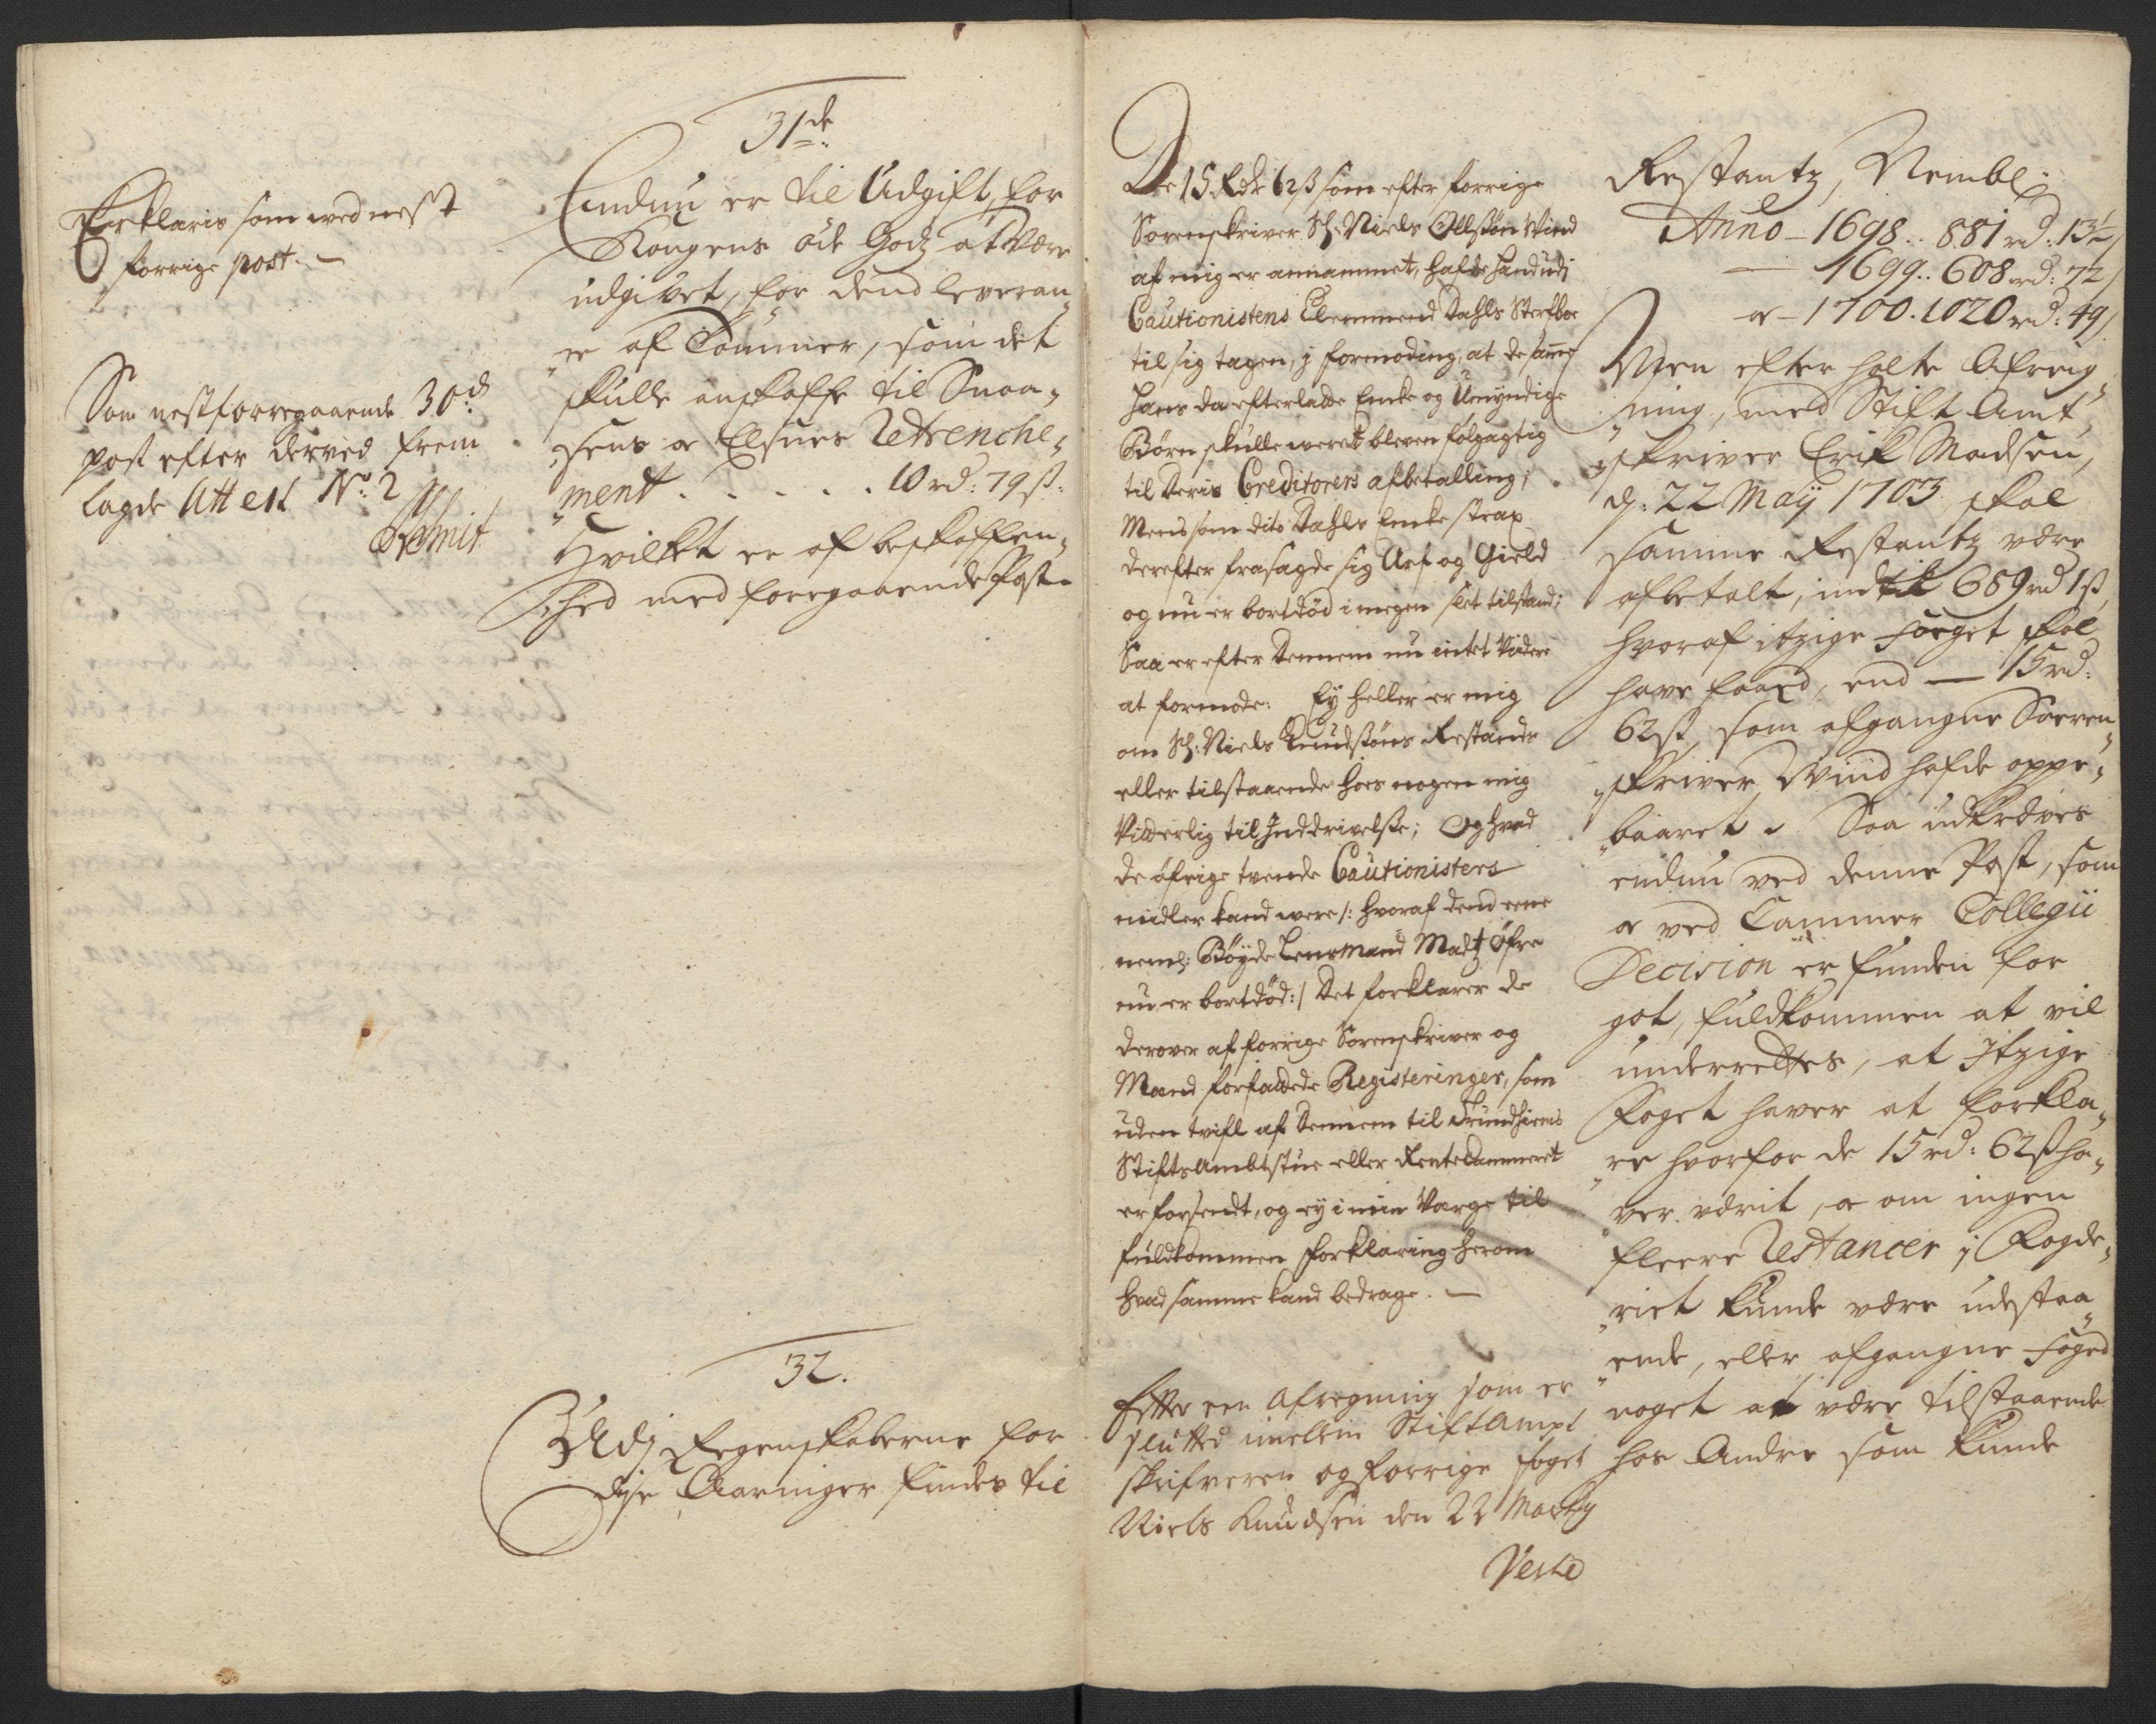 31de
Erklæris som wed nest
forrige post. —
Som nestforregaaende 30de
post efter derved frem
lagde Attest No: 2
Schmit
Endnu er til Udgift for
Kongens öde Godz at Være
udgivet, for dend leveran„
„ce af Tømmer, som det
skulle anskaffe til Snaa„
„sens og Elsnes Retrenche„
„ment . . . . . 10 rd: 79 ß:
Hvilket er af beskaffen„
„hed med foregaaende Post.
32.
Udj Regenskaberne for
disse Aaringer findes til
De 15 Rdr 62 ß som efter forrige
Sorenskriver Sl: Niels Ollssøn Wind
af mig er annammet, hafde hand udj
Cautionistens Clemmend Dahls Sterfboe
til sig tagen, j formoding, at de samme
hans da efterladte Encke og Umyndige
Børn skulle weret bleven følgagtig
til deris Creditorers afbetalling;
Mens som dito Dahls Encke strax
derefter frasagde sig Arf og Gield
og nu er bortdöd i megen slet tilstand;
Saa er efter dennem nu intet Videre
at formode: Ey heller er mig
om Sl: Niels Knudssøns Restantz
eller tilstaaende hoes nogen mig
Vitterlig til Inddrivelsse; Og hvad
de øfrige tvende Cautionisters
midler kand were /: hvoraf dend eene
neml: Bøyde Lensmand Matz Øfre
nu er bortdöd:/ Det forklarer de
derover af forrige Sorenskriver og
Mænd forfattede Registeringer, som
uden tvifl af dennem til Trundhiems
Stiftsambtstue eller Rentecammeret
er forsendt, og ey i min Varge til
fuldkommen forklaring herom
hvad samme kand bedrage. —
Efter een Afregning som er
sluttet imellem StiftAmpt
skrifveren og forrige foget
Niels Knudsen den 22 Maÿ
Restantz, Nembl:
Anno - 1698 .. 881 rd: 13½
— 1699 .. 608 rd: 72
og - 1700 . 1020 rd: 49
Men efter holte Afreig„
„ning, med Stift Amt„
„skriver Erik Madsen,
d: 22 Maÿ 1703, skal
samme Restantz være
afbetalt, indtil 689 rd 1 ß
hvoraf itzige foeget skal
have faaed, end — 15 rd:
62 ß, som afgangne Soren„
„skriver Wiind hafde oppe„
„baaret. Saa udkrdves
endnu ved denne Post, som
og ved Cammer Collegii
Decision er funden for
got, fuldkommen at vil
underrettes, at Itzige
Foget haver at forkla„
„re hvorfor de 15 rd: 62 ß ha„
„ver værit, og om ingen
fleere Restancer j Fogde„
„riet kunde være udestaa„
„ende, eller afgangne Foged
noget at være tilstaaende
hos Andre som kunde